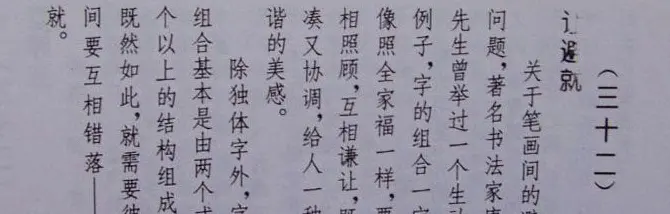 (三十二)
让避就
关于笔画间的避
问题,著名书法家
先生曾举过一个生动
例子,字的组合一定
像照全家福一样,要
相照顾,互相谦让,既
凑又协调,给人一种
谐的美感。
除独体字外,字
组合基本是由两个或
个以上的结构组成
既然如此,就需要彼
间要互相错落——
就。